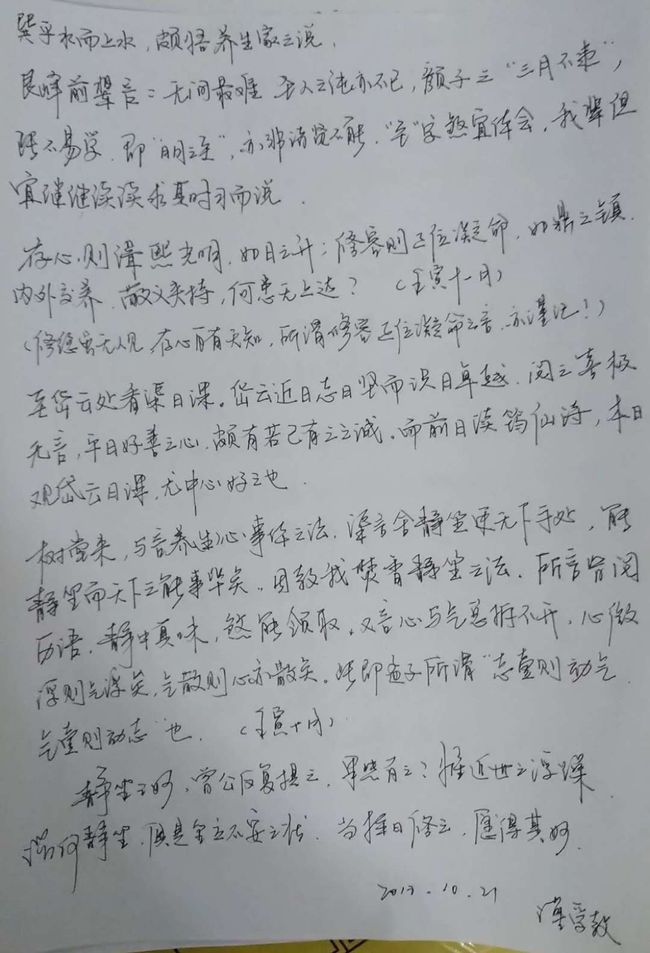 巽乎水而上水，颇悟养生家之说。
艮峰前辈言：无间最难，圣人之纯亦不已，颜子之“三月不违”，
皆不易学，即“日月之至”，亦非诸贤不能，“至”字煞宜体会，我辈但
宜继继续续求其时习而说。
存心则缉熙光明，如日之升；修容则正位凝命，如鼎之镇。
内外交养，敬义夹持，何患无上达？（壬寅十一月）
（修德虽无人见，存心自有天知，所谓修容正位凝命之言，亦谨记！）
至岱云处看渠日课。岱云近日志日坚而识日卓越，阅之喜极
无言，平日好善之心，颇有若己有之之诚。而前日读筠仙诗，本日
观岱云日课，尤中心好之也。
树堂来，与言养生心事体之法，渠言舍静坐更无下手处，能
静坐而天下之能事毕矣。因教我焚香静坐之法，所言皆阅
历语。静中真味，煞能领取。又言心与气总拆不开，心微
浮则气浮矣，气散则心亦散矣。此即孟子所谓“志壹则动气
气壹则动志”也。（壬寅十月）
静坐之妙，曾公反复提之，果然有之？惟近世之浮躁
静坐，俱是坐立不安之状。当择日修之，愿得其妙。
2017.10.21
谨受教